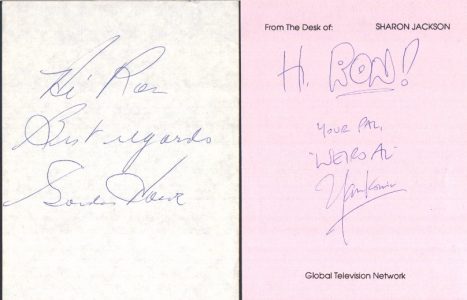 Hi Ron
Best regards
Gordie Howe
From The Desk of: SHARON JACKSON
Hi, RON!
YOUR PAL,
"WEIRD AL"
Yankovic
Global Television Network